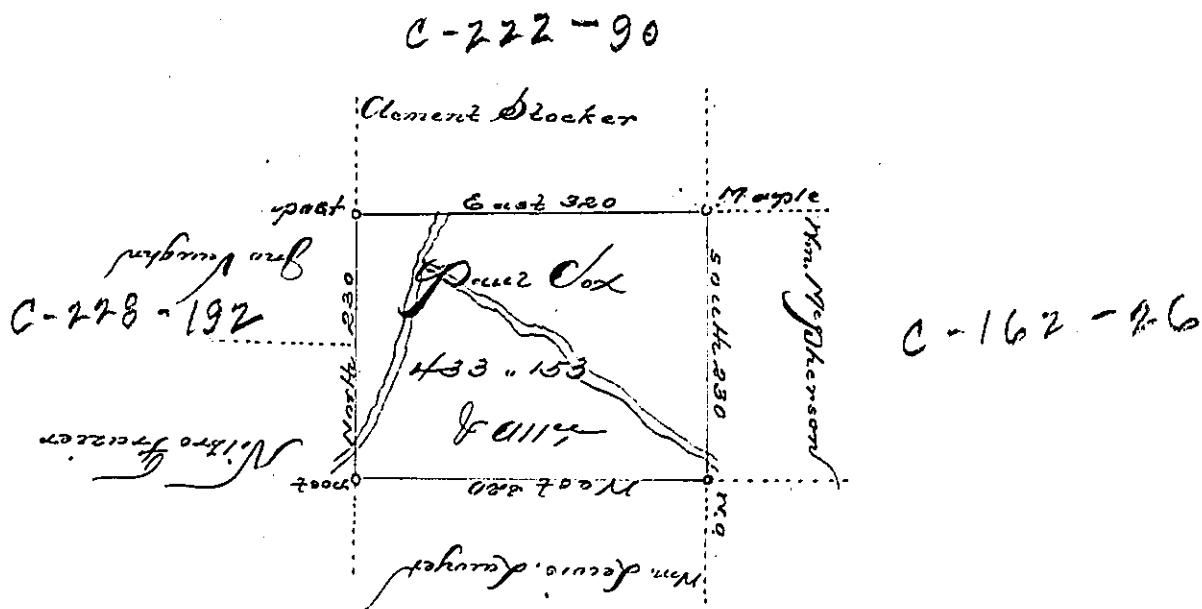 C-222-90
Clement Stocker
East 320
Maple
post
Jno Vaughn
C-228-192
North 230
Cox
433 " 153
& allce
South 230
Wm. McPherson
C-162-26
Frazier
post
West 320
W.O.
Wm. Lewis.